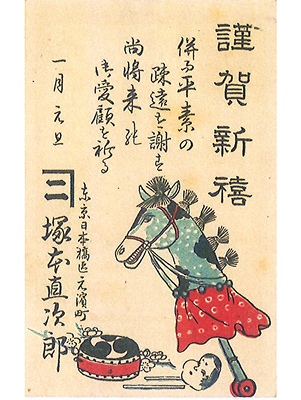 謹賀新禧
平素の
疎遠を謝し
尚将来
御愛顧を祈る
一月元旦
二
東京日本橋区元濱町
塚本直次郎